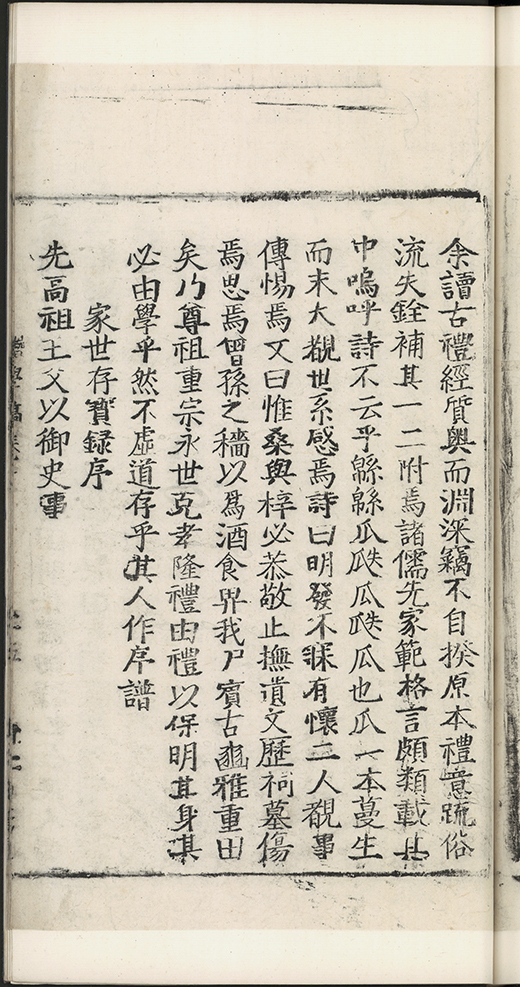 余讀古禮經質奧而淵深竊不自揆原本禮意疏俗
流失銓補其一二附焉諸儒先家範格言頗類載其
中嗚呼詩不云乎緜緜瓜瓞瓜瓞瓜也瓜一本蔓生
而末大覩世系感焉詩曰明發不寐有懷二人覩事
傳惕焉又曰惟桑與梓必恭敬止撫遺文歷祠墓傷
焉思焉曾孫之穡以爲酒食畀我尸賓古豳雅重田
矣乃尊祖重宗永世克孝隆禮由禮以保明其身其
必由學乎然不虛道存乎其人作序譜
家世存寶録序
先高祖王父以御史事